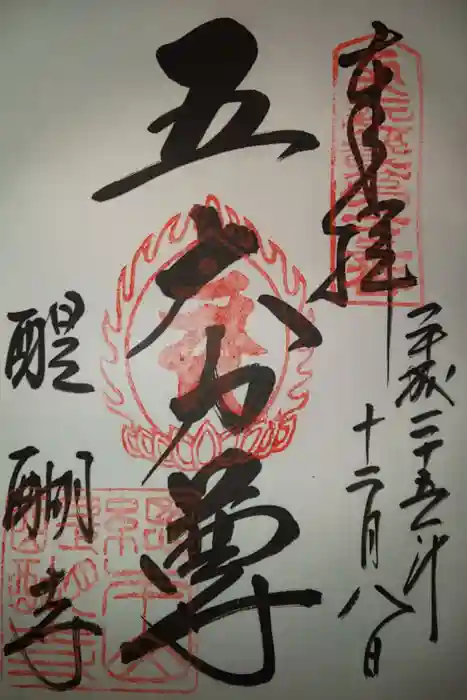 奉拝
平成二十五年
十二月八日
五大力尊
醍醐寺